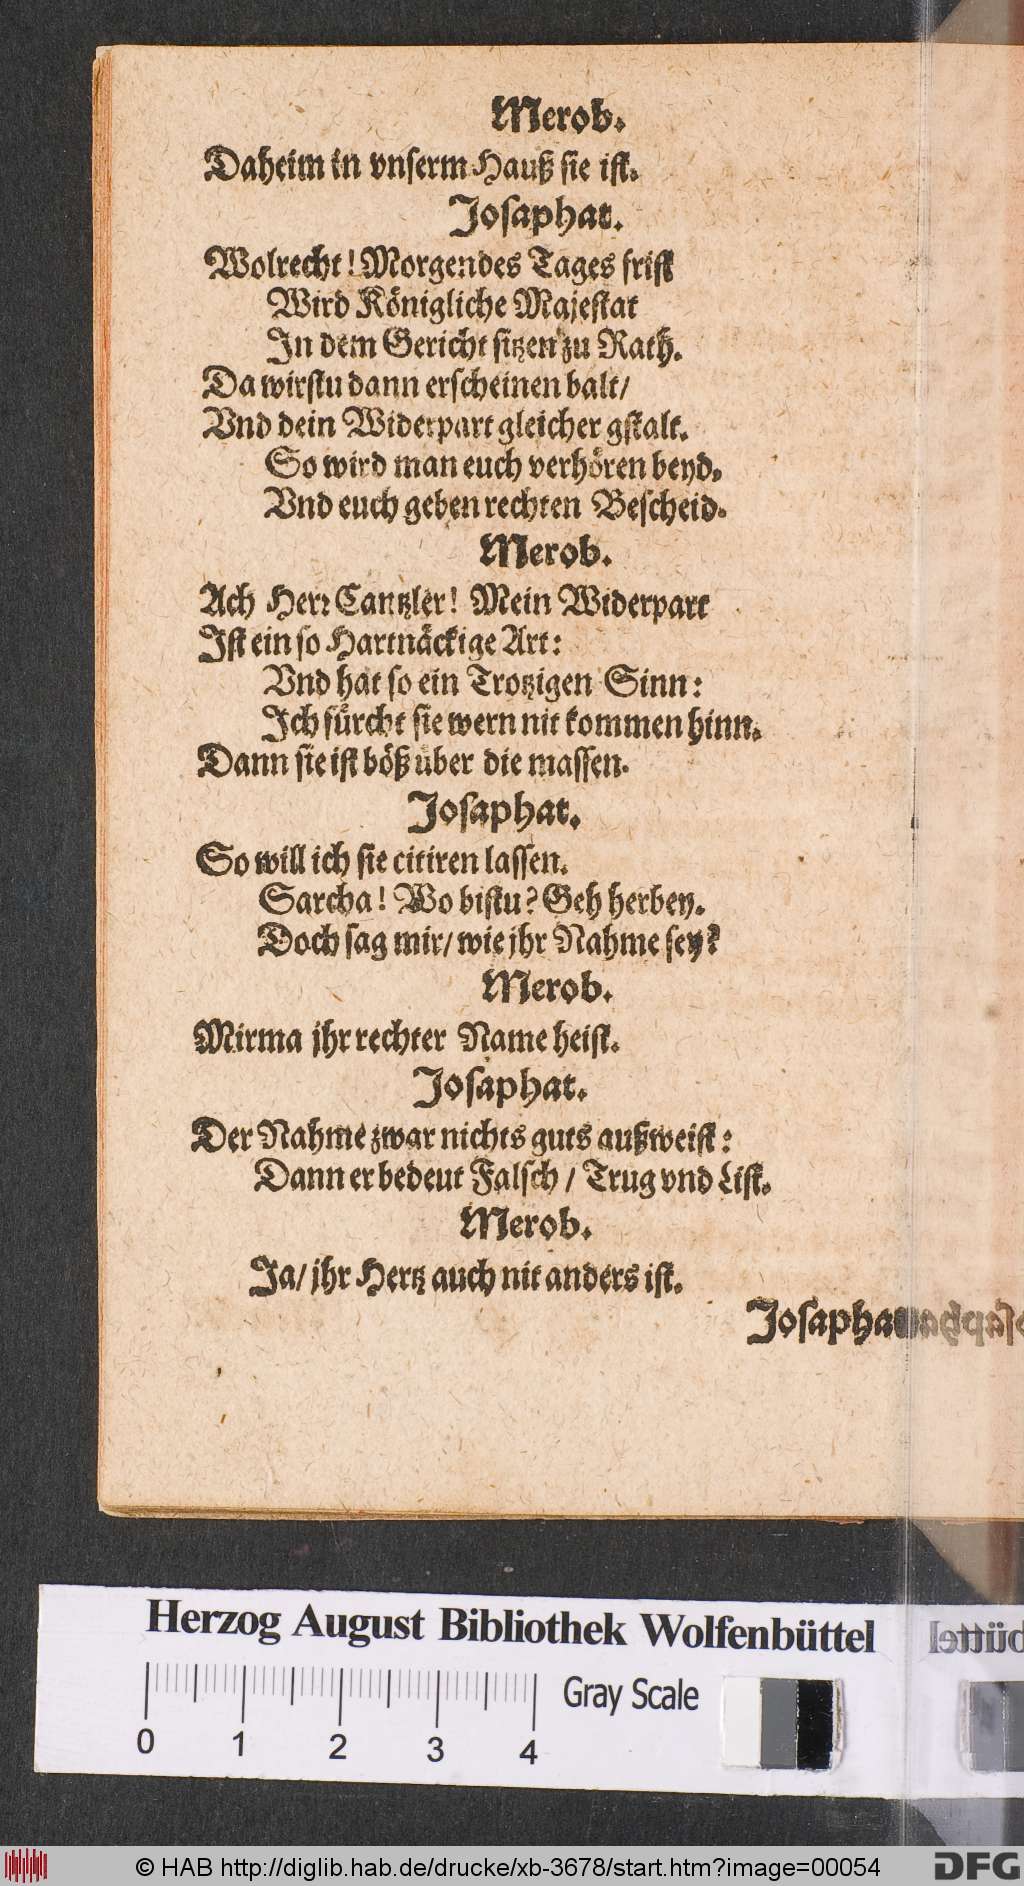 Merob.
Daheim in vnserm Hauß sie ist.
Josaphat.
Wolrecht! Morgendes Tages frist
Wird Königliche Majestat
In dem Gericht sitzen zu Rath.
Da wirstu dann erscheinen balt/
Vnd dein Widerpart gleicher gstalt.
So wird man euch verhören beyd.
Vnd euch geben rechten Bescheid.
Merob.
Ach Herr Cantzler! Mein Widerpart
Ist ein so Hartnäckige Art:
Vnd hat so ein Trotzigen Sinn:
Ich fürcht sie wern nit kommen hinn.
Dann sie ist böß über die massen.
Josaphat.
So will ich sie citiren lassen.
Sarcha! Wo bistu? Geh herbey.
Doch sag mir/ wie jhr Nahme sey?
Merob.
Mirma jhr rechter Name heist.
Josaphat.
Der Nahme zwar nichts guts außweist:
Dann er bedeut Falsch/ Trug vnd List.
Merob.
Ja/ jhr Hertz auch nit anders ist.
Josapha
Herzog August Bibliothek Wolfenbüttel
Gray Scale
0 1 2 3 4
© HAB http://diglib.hab.de/drucke/xb-3678/start.htm?image=00054
DFG